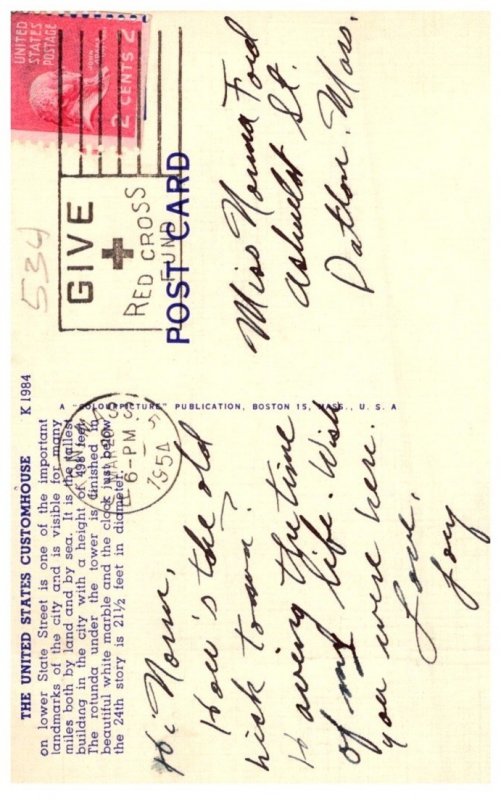 THE UNITED STATES CUSTOMHOUSE K 1984
on lower State Street is one of the important
landmarks of the city and is visible for many
miles both by land and by sea. It is the tallest
building in the city with a height of 498 feet.
The rotunda under the tower is finished in
beautiful white marble and the clock just below
the 24th story is 21½ feet in diameter.
Hi Norm,
How's the old
hick town?
Having the time
of my life. Wish
you were here.
Love,
Joy
A "COLOURPICTURE" PUBLICATION, BOSTON 15, MASS., U. S. A
6-PM
1954
POST CARD
GIVE
RED CROSS
FUND
UNITED
STATES
POSTAGE
2 CENTS 2
534
Miss Norma Ford
St.
Mass.